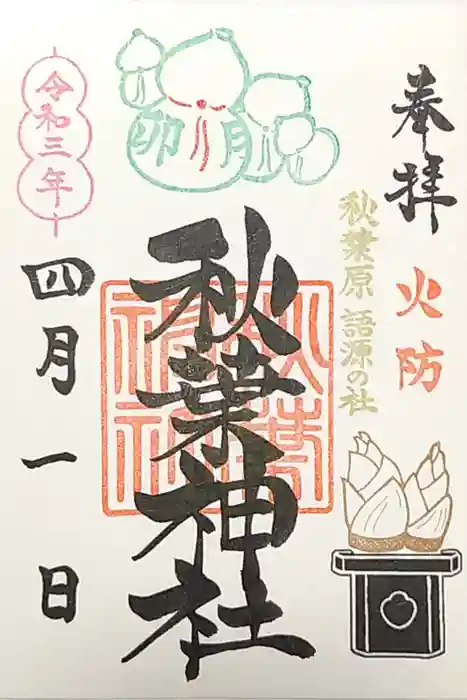 奉拝
火防
秋葉原 語源の社
卯月
秋葉神社
秋葉神社
令和三年
四月一日